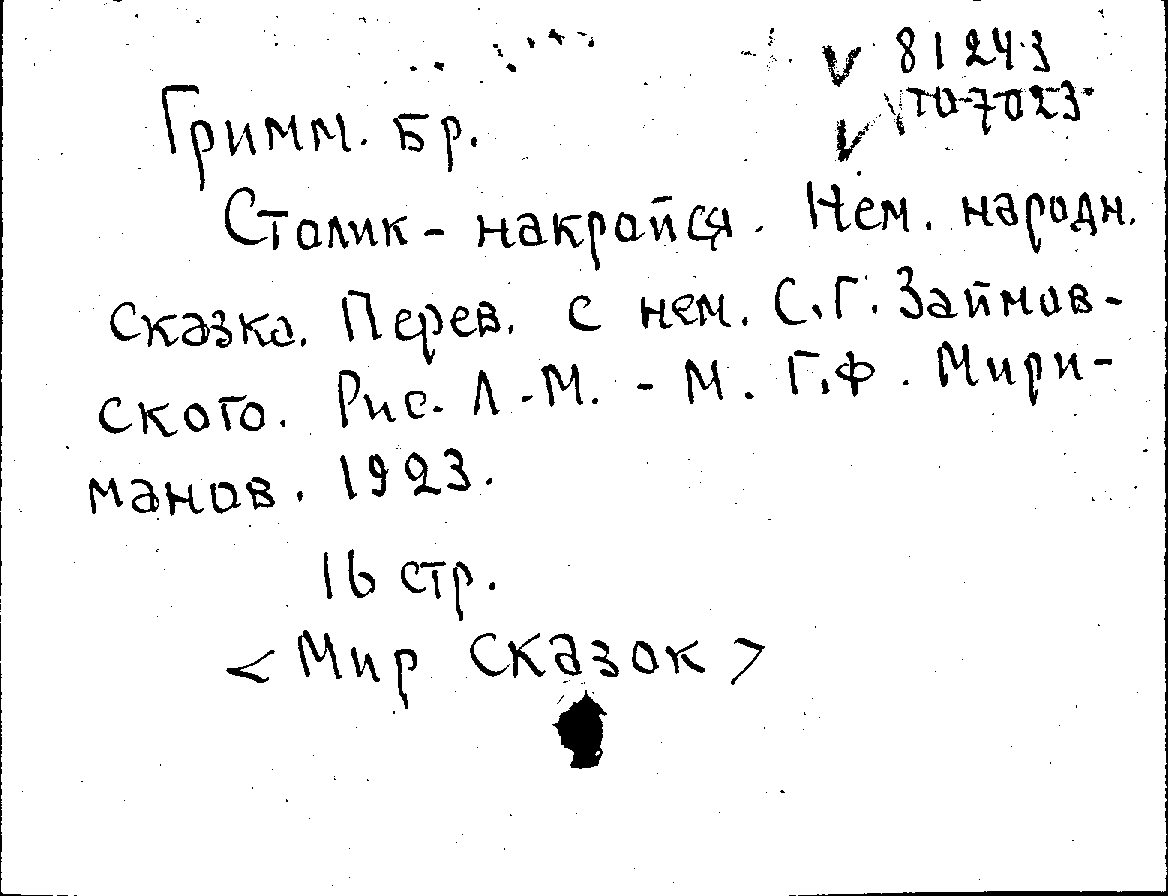 81243
Гримм. Бр.
Столик-накройся. Нем. народн.
сказка. Перев. с нем. С.Г. Займов-
ского. Рис. Л.-М. - М. Г.Ф. Мири-
манов. 1923.
16 стр.
<Мир сказок>